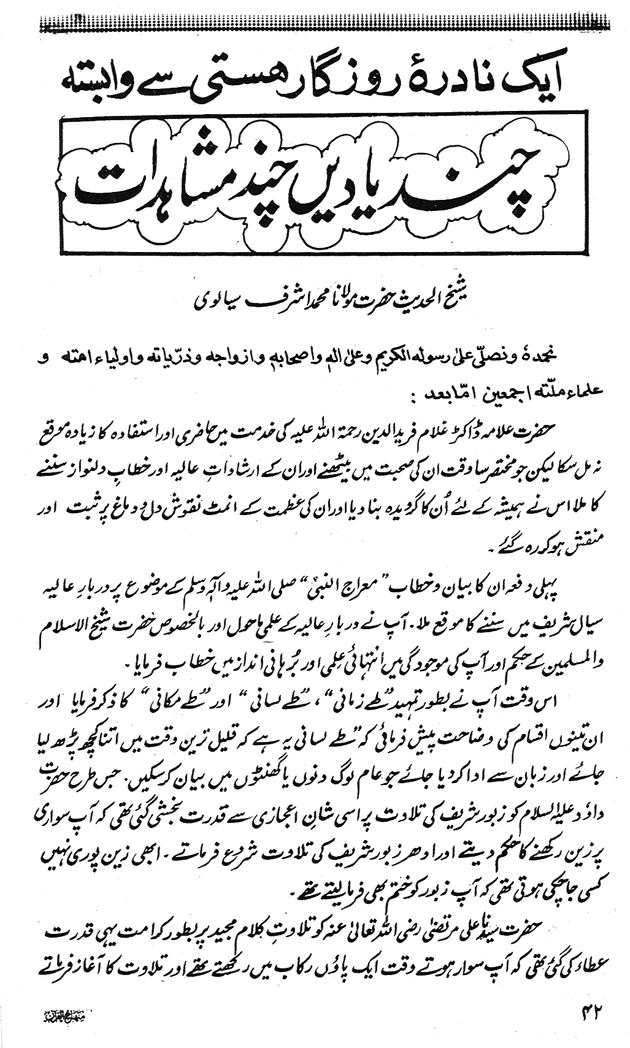 ایک نادرۂ روزگار ھستی سے وابستہ
چند یادیں چند مشاہدات
شیخ الحدیث حضرت مولانا محمد اشرف سیالوی
نحمدہٗ ونصلّی علیٰ رسولہ الکریم وعلیٰ اٰلہ واصحابہٖ وازواجہ وذرّیاتہ واولیاء امتہ و
علماء ملّتہ اجمعین امّا بعد :
حضرت علامہ ڈاکٹر غلام فرید الدین رحمۃ اللہ علیہ کی خدمت میں حاضری اور استفادہ کا زیادہ موقع
نہ مل سکا لیکن جو مختصر سا وقت ان کی صحبت میں بیٹھنے اور ان کے ارشاداتِ عالیہ اور خطابِ دلنواز سننے
کا ملا اس نے ہمیشہ کے لئے اُن کا گرویدہ بنا دیا اور ان کی عظمت کے انمٹ نقوش دل و دماغ پر ثبت اور
منقش ہو کر رہ گئے ۔
پہلی دفعہ ان کا بیان و خطاب ”معراج النبیؐ“ صلی اللہ علیہ وآلہٖ وسلم کے موضوع پر دربارِ عالیہ
سیال شریف میں سننے کا موقع ملا۔ آپ نے دربارِ عالیہ کے علمی ماحول اور بالخصوص حضرت شیخ الاسلام
والمسلمین کے حکم اور آپ کی موجودگی میں انتہائی علمی اور بُرہانی انداز میں خطاب فرمایا ۔
اس وقت آپ نے بطورِ تمہید ”طےِ زمانی“ ، ”طےِ لسانی“ اور ”طےِ مکانی“ کا ذکر فرمایا اور
ان تینوں اقسام کی وضاحت پیش فرمائی کہ ”طےِ لسانی یہ ہے کہ قلیل ترین وقت میں اتنا کچھ پڑھ لیا
جائے اور زبان سے ادا کر دیا جائے جو عام لوگ دنوں یا گھنٹوں میں بیان کر سکیں. جس طرح حضرت
داؤد علیہ السلام کو زبور شریف کی تلاوت پر اسی شانِ اعجازی سے قدرت بخشی گئی تھی کہ آپ سواری
پر زین رکھنے کا حکم دیتے اور ادھر زبور شریف کی تلاوت شروع فرماتے ۔ ابھی زین پوری نہیں
کسی جا چکی ہوتی تھی کہ آپ زبور کو ختم بھی فرما لیتے تھے ۔
حضرت سیدنا علی مرتضیٰ رضی اللہ تعالیٰ عنہ کو تلاوتِ کلام مجید پر بطورِ کرامت یہی قدرت
عطاء کی گئی تھی کہ آپ سوار ہوتے وقت ایک پاؤں رکاب میں رکھتے تھے اور تلاوت کا آغاز فرماتے
۴۲